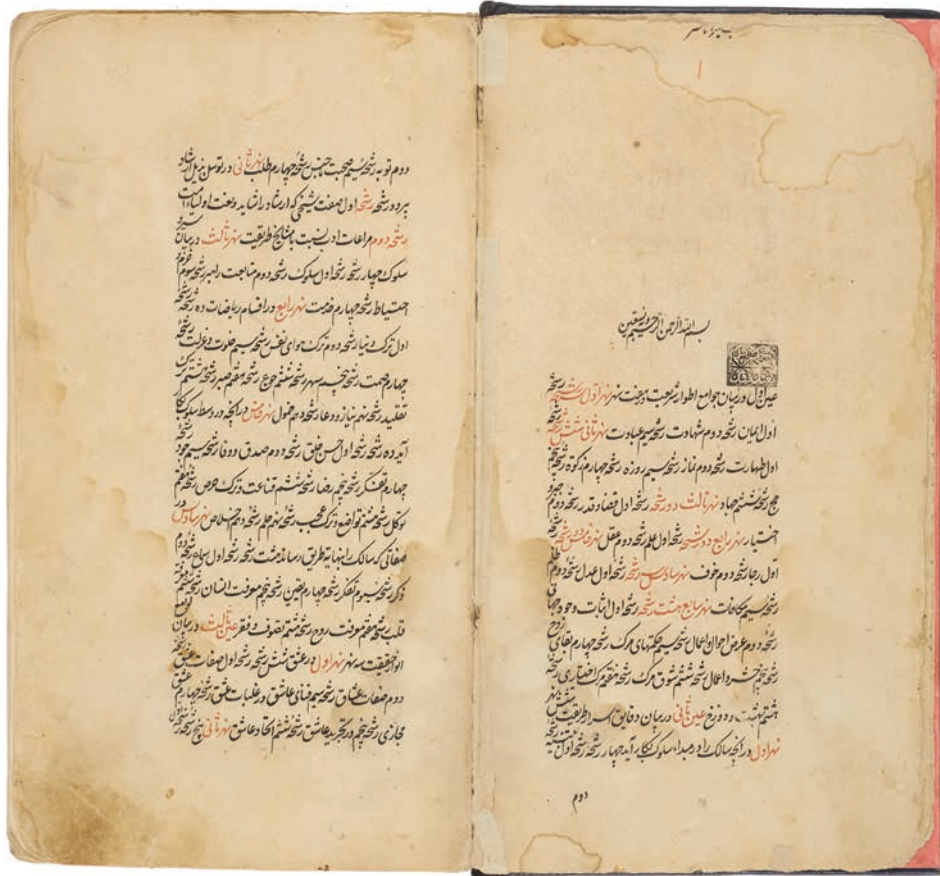 بسم الله الرحمن الرحیم وبه نستعین
عین اول در بیان جوامع اطوار شریعت و هفت نهر نهر اول سه رشحه رشحه
اول ایمان رشحه دوم شهادت رشحه سیم عبادت نهر ثانی شش رشحه رشحه
اول طهارت رشحه دوم نماز رشحه سیم روزه رشحه چهارم زکوة رشحه پنجم
حج رشحه ششم جهاد نهر ثالث دو رشحه رشحه اول قضا و قدر رشحه دوم جبر و
اختیار نهر رابع دو رشحه رشحه اول علم رشحه دوم عقل نهر خامس دو رشحه رشحه
اول رجا رشحه دوم خوف نهر سادس سه رشحه رشحه اول عدل رشحه دوم ظلم
رشحه سیم مکافات نهر سابع هشت رشحه رشحه اول اثبات وجود
رشحه دوم عرض احوال و اعمال رشحه سیم حکمتهای مرگ رشحه چهارم بقای روح
رشحه پنجم حشر و اعمال رشحه ششم شوق مرگ رشحه هفتم مرگ اختیاری رشحه
هشتم بهشت و دوزخ عین ثانی در بیان دقایق اسرار طریقت شش نهر
نهر اول در آنچه سالک را در مبداء سلوک بکار آید چهار رشحه رشحه اول
دوم
دوم توبه رشحه سیم صحبت رشحه چهارم طلب نهر ثانی در توسل بذیل ارشاد
پیر دو رشحه رشحه اول صفت شیخی که ارشاد را شاید و نعت اولیاء امت
رشحه دوم مراعات ادب نسبت با مشایخ طریقت نهر ثالث در بیان سیر و
سلوک چهار رشحه رشحه اول سلوک رشحه دوم متابعت راهبر رشحه سوم حزم و
احتیاط رشحه چهارم خدمت نهر رابع در اقسام ریاضات ده رشحه رشحه
اول ترک دنیا رشحه دوم ترک هوای نفس رشحه سیم خلوت و عزلت رشحه
چهارم صمت رشحه پنجم سهر رشحه ششم جوع رشحه هفتم صبر رشحه هشتم ترک
تقلید رشحه نهم نیاز و دعا رشحه دهم خمول نهر خامس در آنچه در وسط سلوک بکار
آید ده رشحه رشحه اول حسن خلق رشحه دوم صدق و وفا رشحه سیم جود رشحه
چهارم تفکر رشحه پنجم رضا رشحه ششم قناعت و ترک حرص رشحه هفتم
توکل رشحه هشتم تواضع و ترک عجب رشحه نهم حلم رشحه دهم اخلاص نهر سادس در
صفاتی که سالک را بنهایة طریق رساند هشت رشحه رشحه اول سماع رشحه دوم
ذکر رشحه سیوم تفکر رشحه چهارم یقین رشحه پنجم معرفت انسان رشحه ششم معرفت
قلب رشحه هفتم معرفت روح رشحه هشتم تصوف و فقر عین ثالث در بیان لوامع
انوار حقیقت سه نهر نهر اول در عشق شش رشحه رشحه اول صفات عشق رشحه
دوم صفات عشاق رشحه سیم فنای عاشق در غلبات عشق رشحه چهارم عشق
مجازی رشحه پنجم در تجرید عاشق رشحه ششم اتحاد عاشق نهر ثانی پنج رشحه رشحه اول